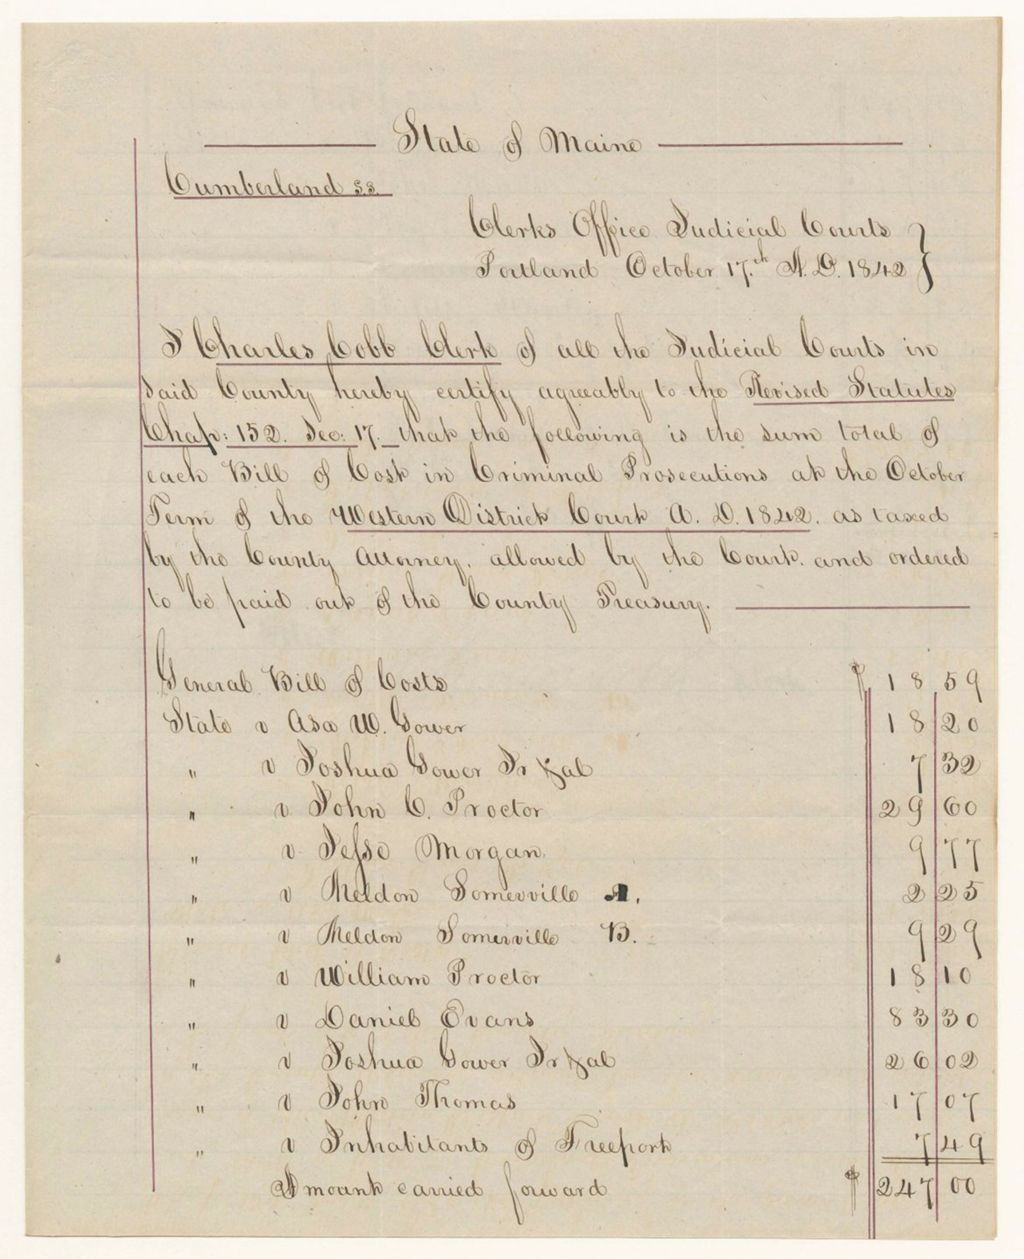 State of Maine
Cumberland ss.
Clerks Office Judicial Courts }
Portland October 17.th A.D. 1842 }
I Charles Cobb Clerk of all the Judicial Courts in
said County hereby certify agreeably to the Revised Statutes
Chap: 152. Sec: 17. that the following is the sum total of
each Bill of Cost in Criminal Prosecutions at the October
Term of the Western District Court A. D. 1842. as taxed
by the County Attorney, allowed by the Court. and ordered
to be paid out of the County Treasury.
General Bill of Costs $ 18 59
State v Asa W. Gower 18 20
" v Joshua Gower Jr &al 7 32
" v John C. Proctor 29 60
" v Jesse Morgan 9 77
" v Meldon Somerville A. 2 25
" v Meldon Somerville B. 9 29
" v William Proctor 18 10
" v Daniel Evans 83 30
" v Joshua Gower Jr &al 26 02
" v John Thomas 17 07
" v Inhabitants of Freeport 7 49
Amount carried forward $ 247 00